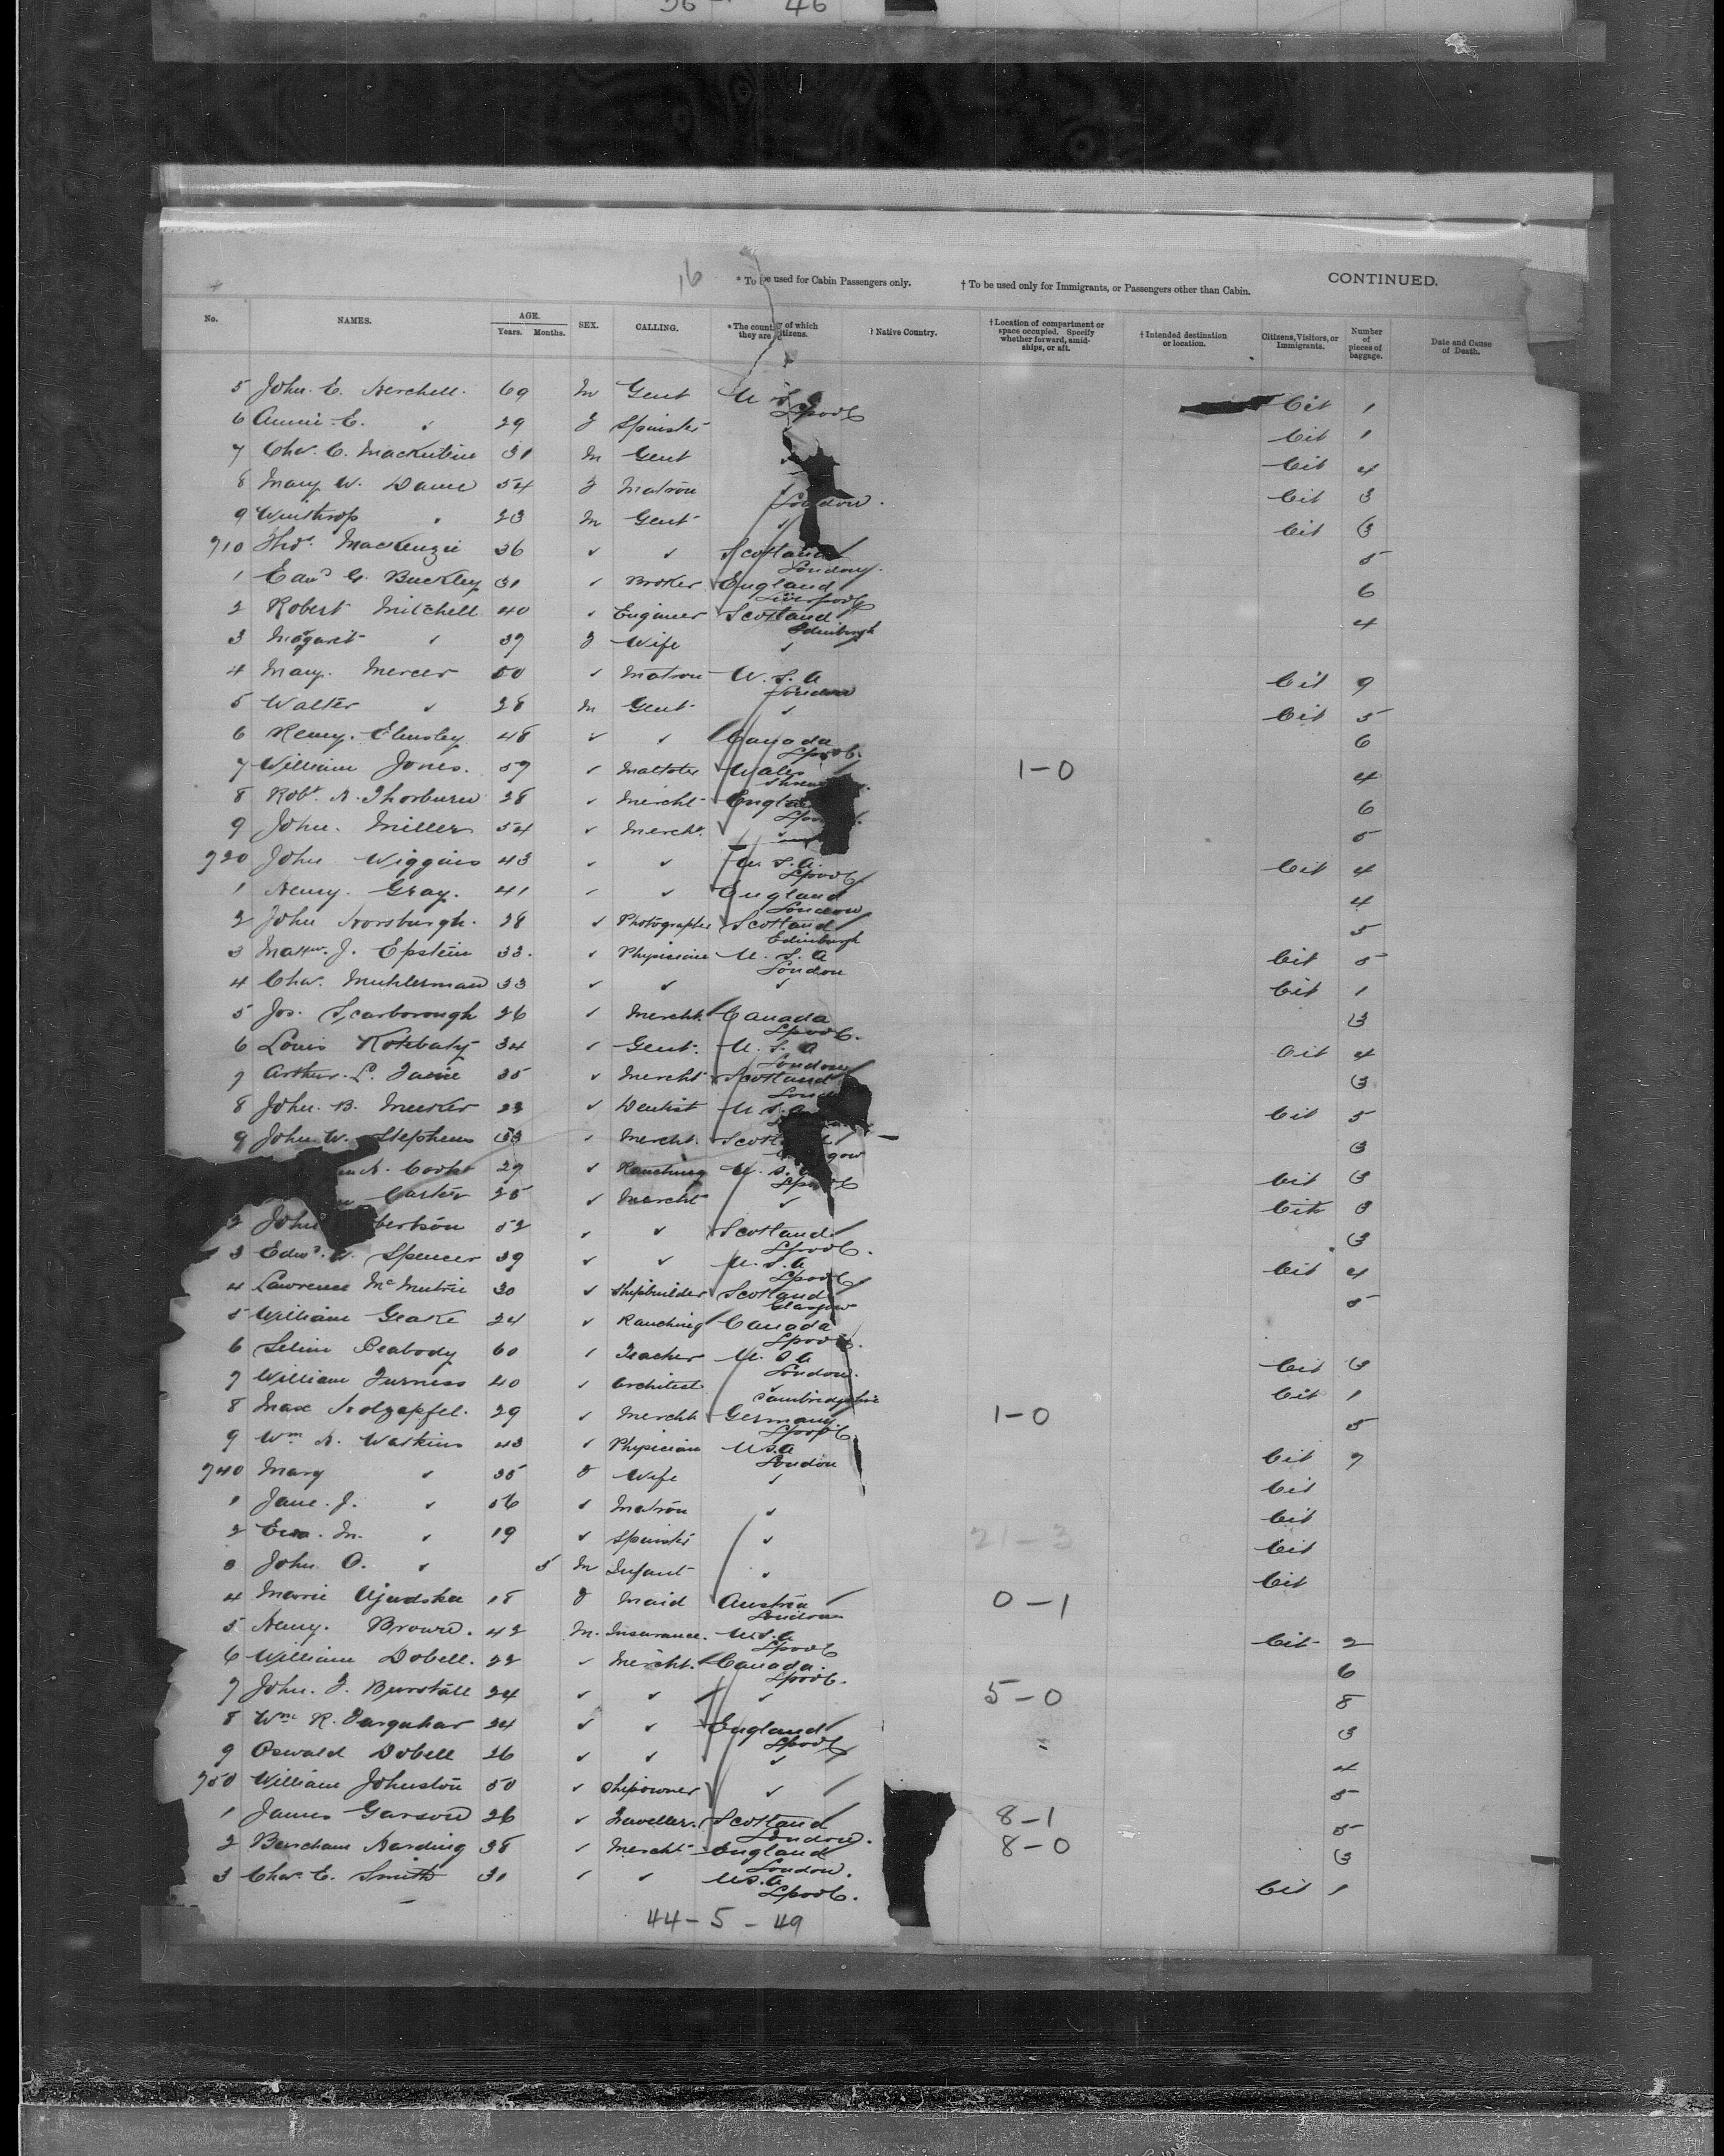 36 — 46
16
* To be used for Cabin Passengers only. † To be used only for Immigrants, or Passengers other than Cabin. CONTINUED.
No. NAMES. AGE. Years. Months. SEX. CALLING. * The country of which they are citizens. † Native Country. † Location of compartment or space occupied. Specify whether forward, amidships, or aft. † Intended destination or location. Citizens, Visitors, or Immigrants. Number of pieces of baggage. Date and Cause of Death.
5 John E. Herchell. 69 M Gent U S A L'pool Cit 1
6 Annie E. " 29 F Spinster Cit 1
7 Chas. C. 31 M Gent Cit 4
8 Mary W. Dame 54 F Matron London. Cit 3
9 Winthrop " 23 M Gent ✓ Cit 3
710 Thos. MacKenzie 36 ✓ ✓ Scotland London. 5
1 Edwd G. Buckley 31 ✓ Broker England Liverpool 6
2 Robert Mitchell 40 ✓ Engineer Scotland Edinburgh 4
3 Margaret " 39 F Wife ✓
4 Mary Mercer 50 ✓ Matron U.S.A London Cit 9
5 Walter " 28 M Gent ✓ Cit 5
6 Henry Elmsley 48 ✓ ✓ Canada L'pool. 6
7 William Jones. 59 ✓ Maltster Wales 1-0 4
8 Robt. A. Thorburn 28 ✓ Mercht England 6
9 John Miller 54 ✓ Mercht. ✓ 5
720 John Wiggins 43 ✓ ✓ U.S.A. L'pool Cit 4
1 Henry Gray. 41 ✓ ✓ England London 4
2 John Horsburgh. 28 ✓ Photographer Scotland Edinburgh 5
3 J. Epstein 33. ✓ Physician U.S.A London Cit 5
4 Chas. Muhlerman 33 ✓ ✓ ✓ Cit 1
5 Jos. Scarborough 26 ✓ Mercht. Canada L'pool. 3
6 Louis 34 ✓ Gent. U.S.A London Cit 4
7 Arthur L. 35 ✓ Mercht Scotland 3
8 John B. Meeker 23 ✓ Dentist U.S.A Cit 5
9 John W. Stephens 53 ✓ Mercht. 3
29 ✓ Ranching U.S. Cit 3
Carter 25 ✓ Mercht ✓ Cit 3
2 John 52 ✓ ✓ Scotland L'pool. 3
3 Edwd. Spencer 39 ✓ ✓ U.S.A L'pool Cit 4
4 Lawrence McMutrie 30 ✓ Shipbuilder Scotland Glasgow 5
5 William Geake 24 ✓ Ranching Canada L'pool.
6 Selim Peabody 60 ✓ Teacher U.S.A London. Cit 3
7 William Furness 40 ✓ Architect Cambridgeshire Cit 1
8 Max Holzapfel. 29 ✓ Mercht Germany. L'pool 1-0 5
9 Wm A. Watkins 43 ✓ Physician U.S.A London Cit 7
740 Mary " 35 F Wife ✓ Cit
1 Jane J. " 56 ✓ Matron ✓ Cit
2 M. " 19 ✓ Spinster ✓ 21-3 Cit
3 John O. " 5 M Infant ✓ Cit
4 Marie 18 F Maid Austria London 0-1
5 Henry Brown. 42 M. Insurance. U.S.A L'pool Cit 2
6 William Dobell. 22 ✓ Mercht. Canada. L'pool. 6
7 John F. Burstall 24 ✓ ✓ ✓ 5-0 8
8 Wm R. Farquhar 24 ✓ ✓ England L'pool 3
9 Oswald Dobell 26 ✓ ✓ ✓ 4
750 William Johnston 50 ✓ Shipowner ✓ 5
1 James Garson 26 ✓ Traveller. Scotland London. 8-1 5
2 Harding 38 ✓ Mercht England London. 8-0 3
3 Chas. E. Smith 31 ✓ ✓ U.S.A L'pool. Cit 1
44-5-49